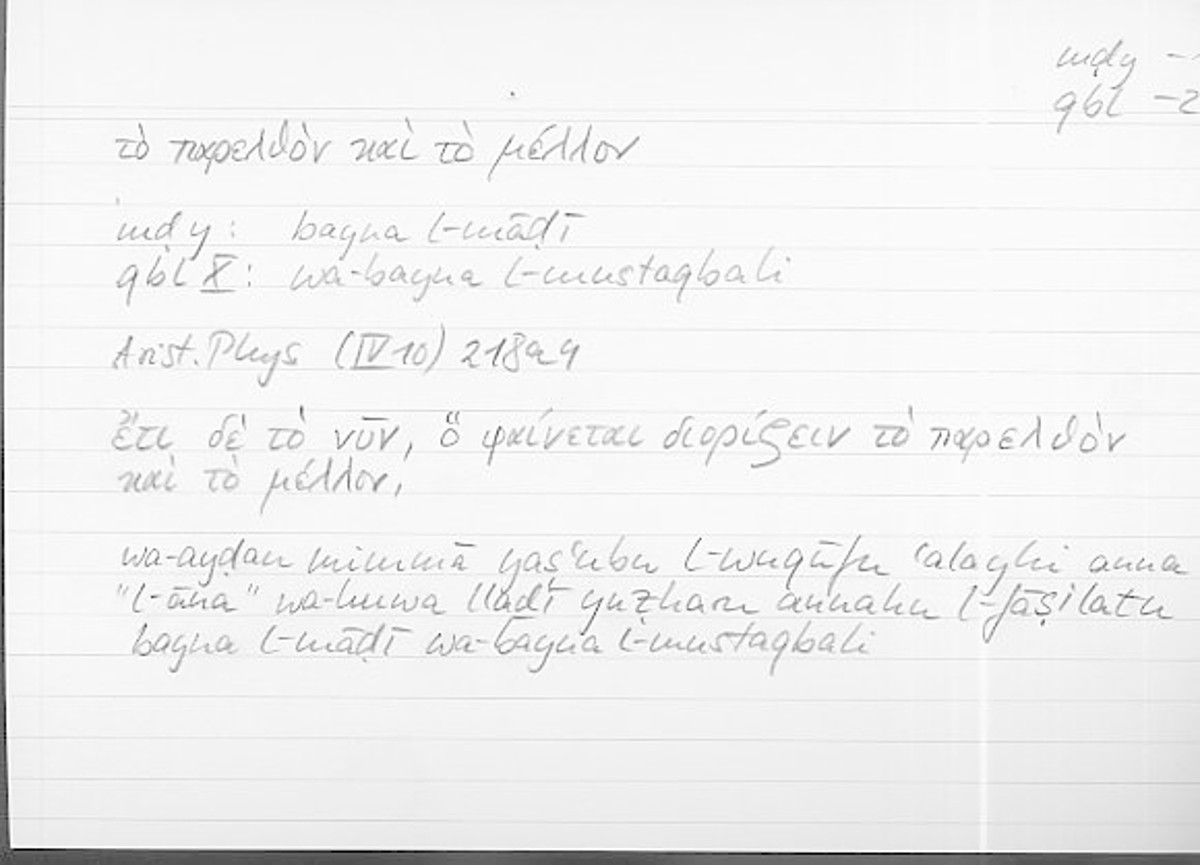 mḍy -1
qbl -2
τὸ παρελθὸν καὶ τὸ μέλλον
mḍy: bayna l-māḍī
qbl X: wa-bayna l-mustaqbali
Arist. Phys (IV 10) 218a9
ἔτι δὲ τὸ νῦν, ὃ φαίνεται διορίζειν τὸ παρελθὸν
καὶ τὸ μέλλον,
wa-ayḍan mimmā yaṣʿubu l-wuqūfu ʿalayhi anna
"l-āna" wa-huwa lladī yuẓhanu annahu l-fāṣilatu
bayna l-māḍī wa-bayna l-mustaqbali